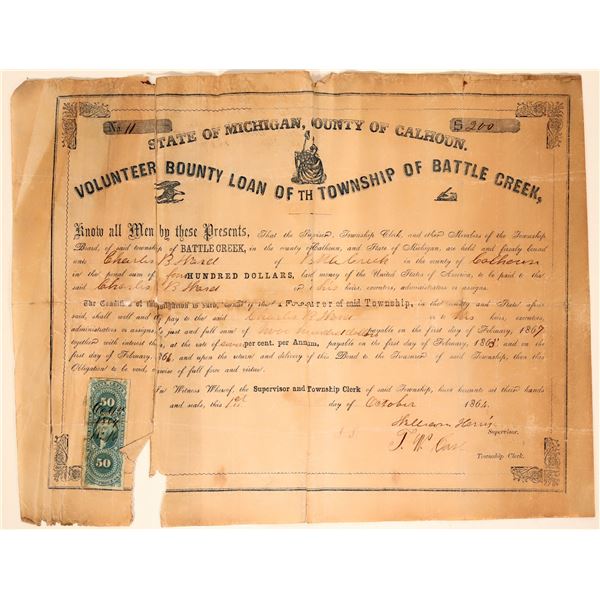 No. 11
$ 200
STATE OF MICHIGAN, OUNTY OF CALHOUN.
VOLUNTEER BOUNTY LOAN OF TH TOWNSHIP OF BATTLE CREEK,
Know all Men by these Presents, That the Township Clerk, and other Members of the Township
Board, of said township of BATTLE CREEK, in the county of Calhoun, and State of Michigan, are held and firmly bound
unto Charles B Ward of Creek in the county of Calhoun
in the penal sum of four HUNDRED DOLLARS, lawful money of the United States of America, to be paid to the
said Charles B Ward his heirs, executors, administrators or assigns.
The Condition of is such, that a of said Township, in the county and State afore
said, shall well and pay to the said Charles B Ward his heirs, executors,
administrators or assigns, just and full sum of payable on the first day of February, 1867
together with interest at the rate of per cent. per Annum, payable on the first day of February, 1865 and on the
first day of February, and upon the return and delivery of this Bond to the Treasurer of said Township, then this
Obligation to be void, of full force and virtue.
In Witness Whereof, the Supervisor and Township Clerk of said Township, have hereunto set their hands
and seals, this 1st day of October 1864.
William
Supervisor.
T. W.
Township Clerk.
50
50